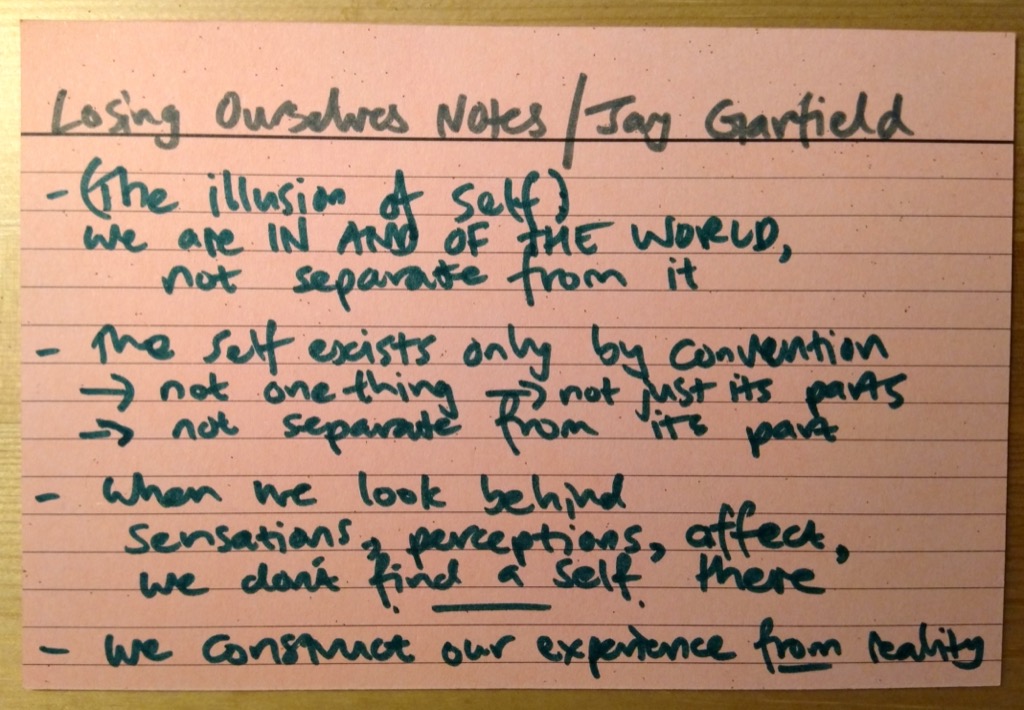 Losing Ourselves Notes / Jay Garfield
- (The illusion of self)
we are IN AND OF THE WORLD,
not separate from it
- The self exists only by convention
→ not one thing → not just its parts
→ not separate from its part
- When we look behind
sensations, perceptions, affect,
we don't find a self there
- We construct our experience from reality